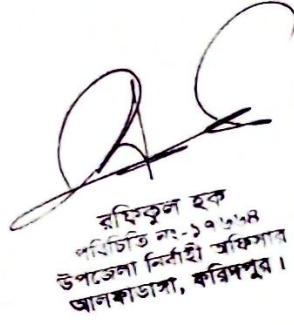 রফিকুল হক
পরিচিতি নং-১৭৬৬৪
উপজেলা নির্বাহী অফিসার
আলফাডাঙ্গা, ফরিদপুর।